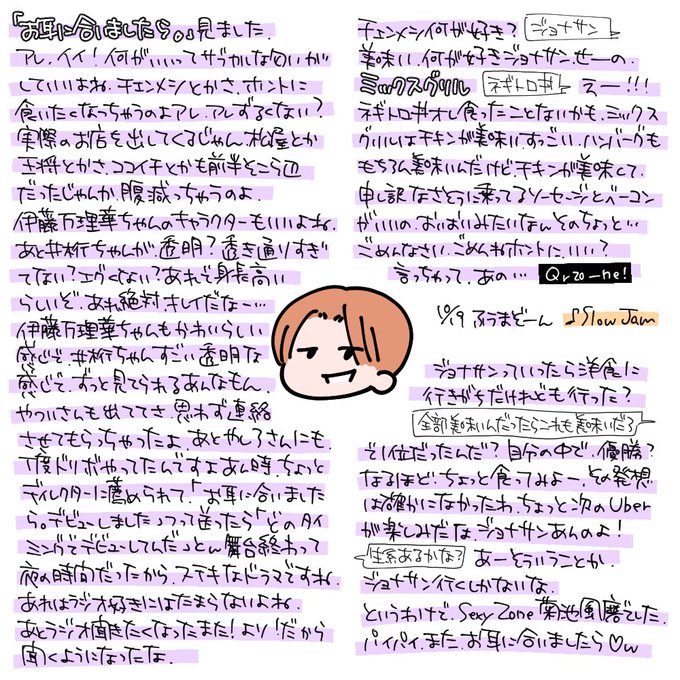 「お耳に合いましたら。」見ました.
アレ、イイ!何がいいってサブカルな匂いが
していいよね.チェンメシとかさ.ホントに
食いたくなっちゃうのよアレ.アレずるくない?
実際のお店を出してくるじゃん.松屋とか
王将とかさ.ココイチとかも前半そこら辺
だったじゃんか.腹減っちゃうのよ.
伊藤万理華ちゃんのキャラクターもいいよね.
あと井桁ちゃんが.透明?透き通りすぎ
てない?エグくない?あれで身長高い
らしいぞ.あれ絶対.キレイだなー…
伊藤万理華ちゃんもかわいらしい
感じで.井桁ちゃんすごい透明な
感じで.ずっと見てられるあんなもん.
やついさんも出ててさ.思わず連絡
させてもらっちゃったよ.あとやしろさんにも.
丁度ドリボやってたんですよあん時.ちょっと
ディレクターに薦められて.「お耳に合いました
ら。デビューしました」つって送ったら「どのタイ
ミングでデビューしてんだ」とw舞台終わって
夜の時間だったから.ステキなドラマですね.
あれはラジオ好きにはたまらないよね.
あとラジオ聞きたくなったまた!より!だから
聞くようになったな.
チェンメシ何が好き? ジョナサン
美味い.何が好きジョナサン.せーの.
ミックスグリル ネギトロ丼 えー!!!
ネギトロ丼オレ食ったことないかも.ミックス
グリルはチキンが美味いすっごい.ハンバーグも
もちろん美味いんだけど.チキンが美味くて.
申し訳なさそうに乗ってるソーセージとベーコン
がいいの.おいおいみたいなんそのちょっと…
ごめんなさい.ごめんねホントに.いい?
言っちゃって.あの… Qrzo-ne!
10/9 ふうまどーん ♪Slow Jam
ジョナサンっていったら洋食に
行きがちだけれども行った?
全部美味いんだったらこれも美味いだろ
で1位だったんだ?自分の中で.優勝?
なるほど.ちょっと食ってみよー.その発想
は確かになかったわ.ちょっと次のUber
が楽しみだな.ジョナサンあんのよ!
生系あるかな? あーそういうことか.
ジョナサン行くしかないな.
というわけで.Sexy Zone 菊池風磨でした.
バイバイ.また.お耳に合いましたら♡w